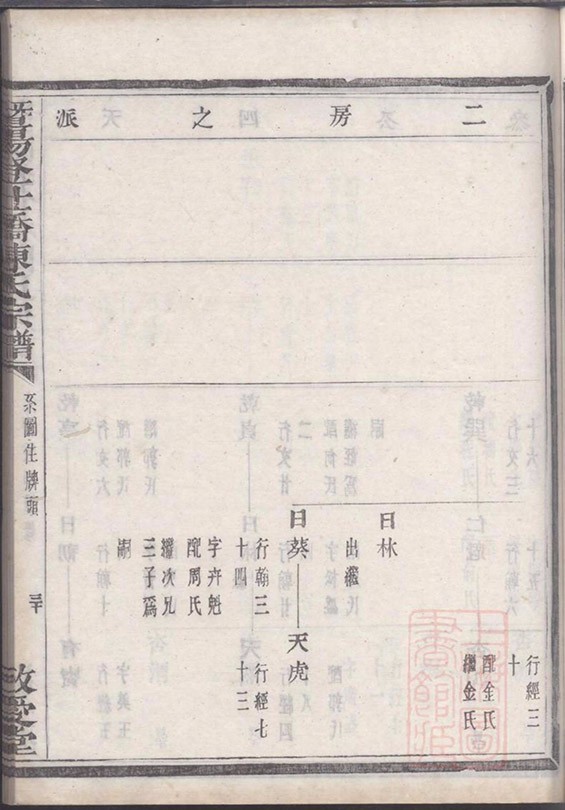 二房之派
行經三
十
配金氏
繼金氏
日林
出繼
日葵
天虎
行翰三
十四
行經七
十三
字卉魁
配周氏
繼次兄
三子為
嗣
暨陽
橋陳氏宗譜
系圖住牌頭
三十
敬愛堂